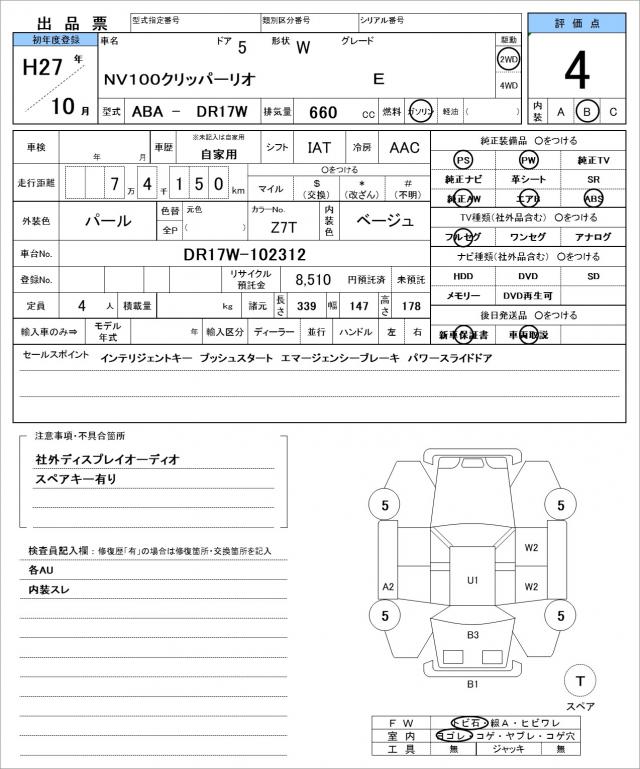 出品票 型式指定番号 類別区分番号 シリアル番号 評価点
初年度登録 車名 ドア 5 形状 W グレード 駆動
H27 年 NV100クリッパーリオ E 2WD 4WD 4
10 月 型式 ABA － DR17W 排気量 660 cc 燃料 ガソリン 軽油 ( ) 内装 A B C
車検 年 月 車歴 ※未記入は自家用 自家用 シフト IAT 冷房 AAC 純正装備品 〇をつける
走行距離 7 万 4 千 1 5 0 km 〇をつける PS PW 純正TV
マイル $ (交換) * (改ざん) # (不明) 純正ナビ 革シート SR
純正AW エアB ABS
外装色 パール 色替 元色 全P ( ) カラーNo. Z7T 内装色 ベージュ TV種類(社外品含む) 〇をつける
フルセグ ワンセグ アナログ
車台No. DR17W-102312 ナビ種類(社外品含む) 〇をつける
登録No. リサイクル預託金 8,510 円預託済 未預託 HDD DVD SD
定員 4 人 積載量 kg 諸元 長さ 339 幅 147 高さ 178 メモリー DVD再生可
輸入車のみ⇒ モデル年式 年 輸入区分 ディーラー 並行 ハンドル 左 右 後日発送品 〇をつける
新車保証書 車両取説
セールスポイント インテリジェントキー プッシュスタート エマージェンシーブレーキ パワースライドドア
注意事項・不具合箇所
社外ディスプレイオーディオ
スペアキー有り
検査員記入欄：修復歴「有」の場合は修復箇所・交換箇所を記入
各AU
内装スレ
5 5
W2
A2 U1 W2
5 5
B3
B1 T
スペア
FW トビ石・線A・ヒビワレ
室内 ヨゴレ・コゲ・ヤブレ・コゲ穴
工具 無 ジャッキ 無